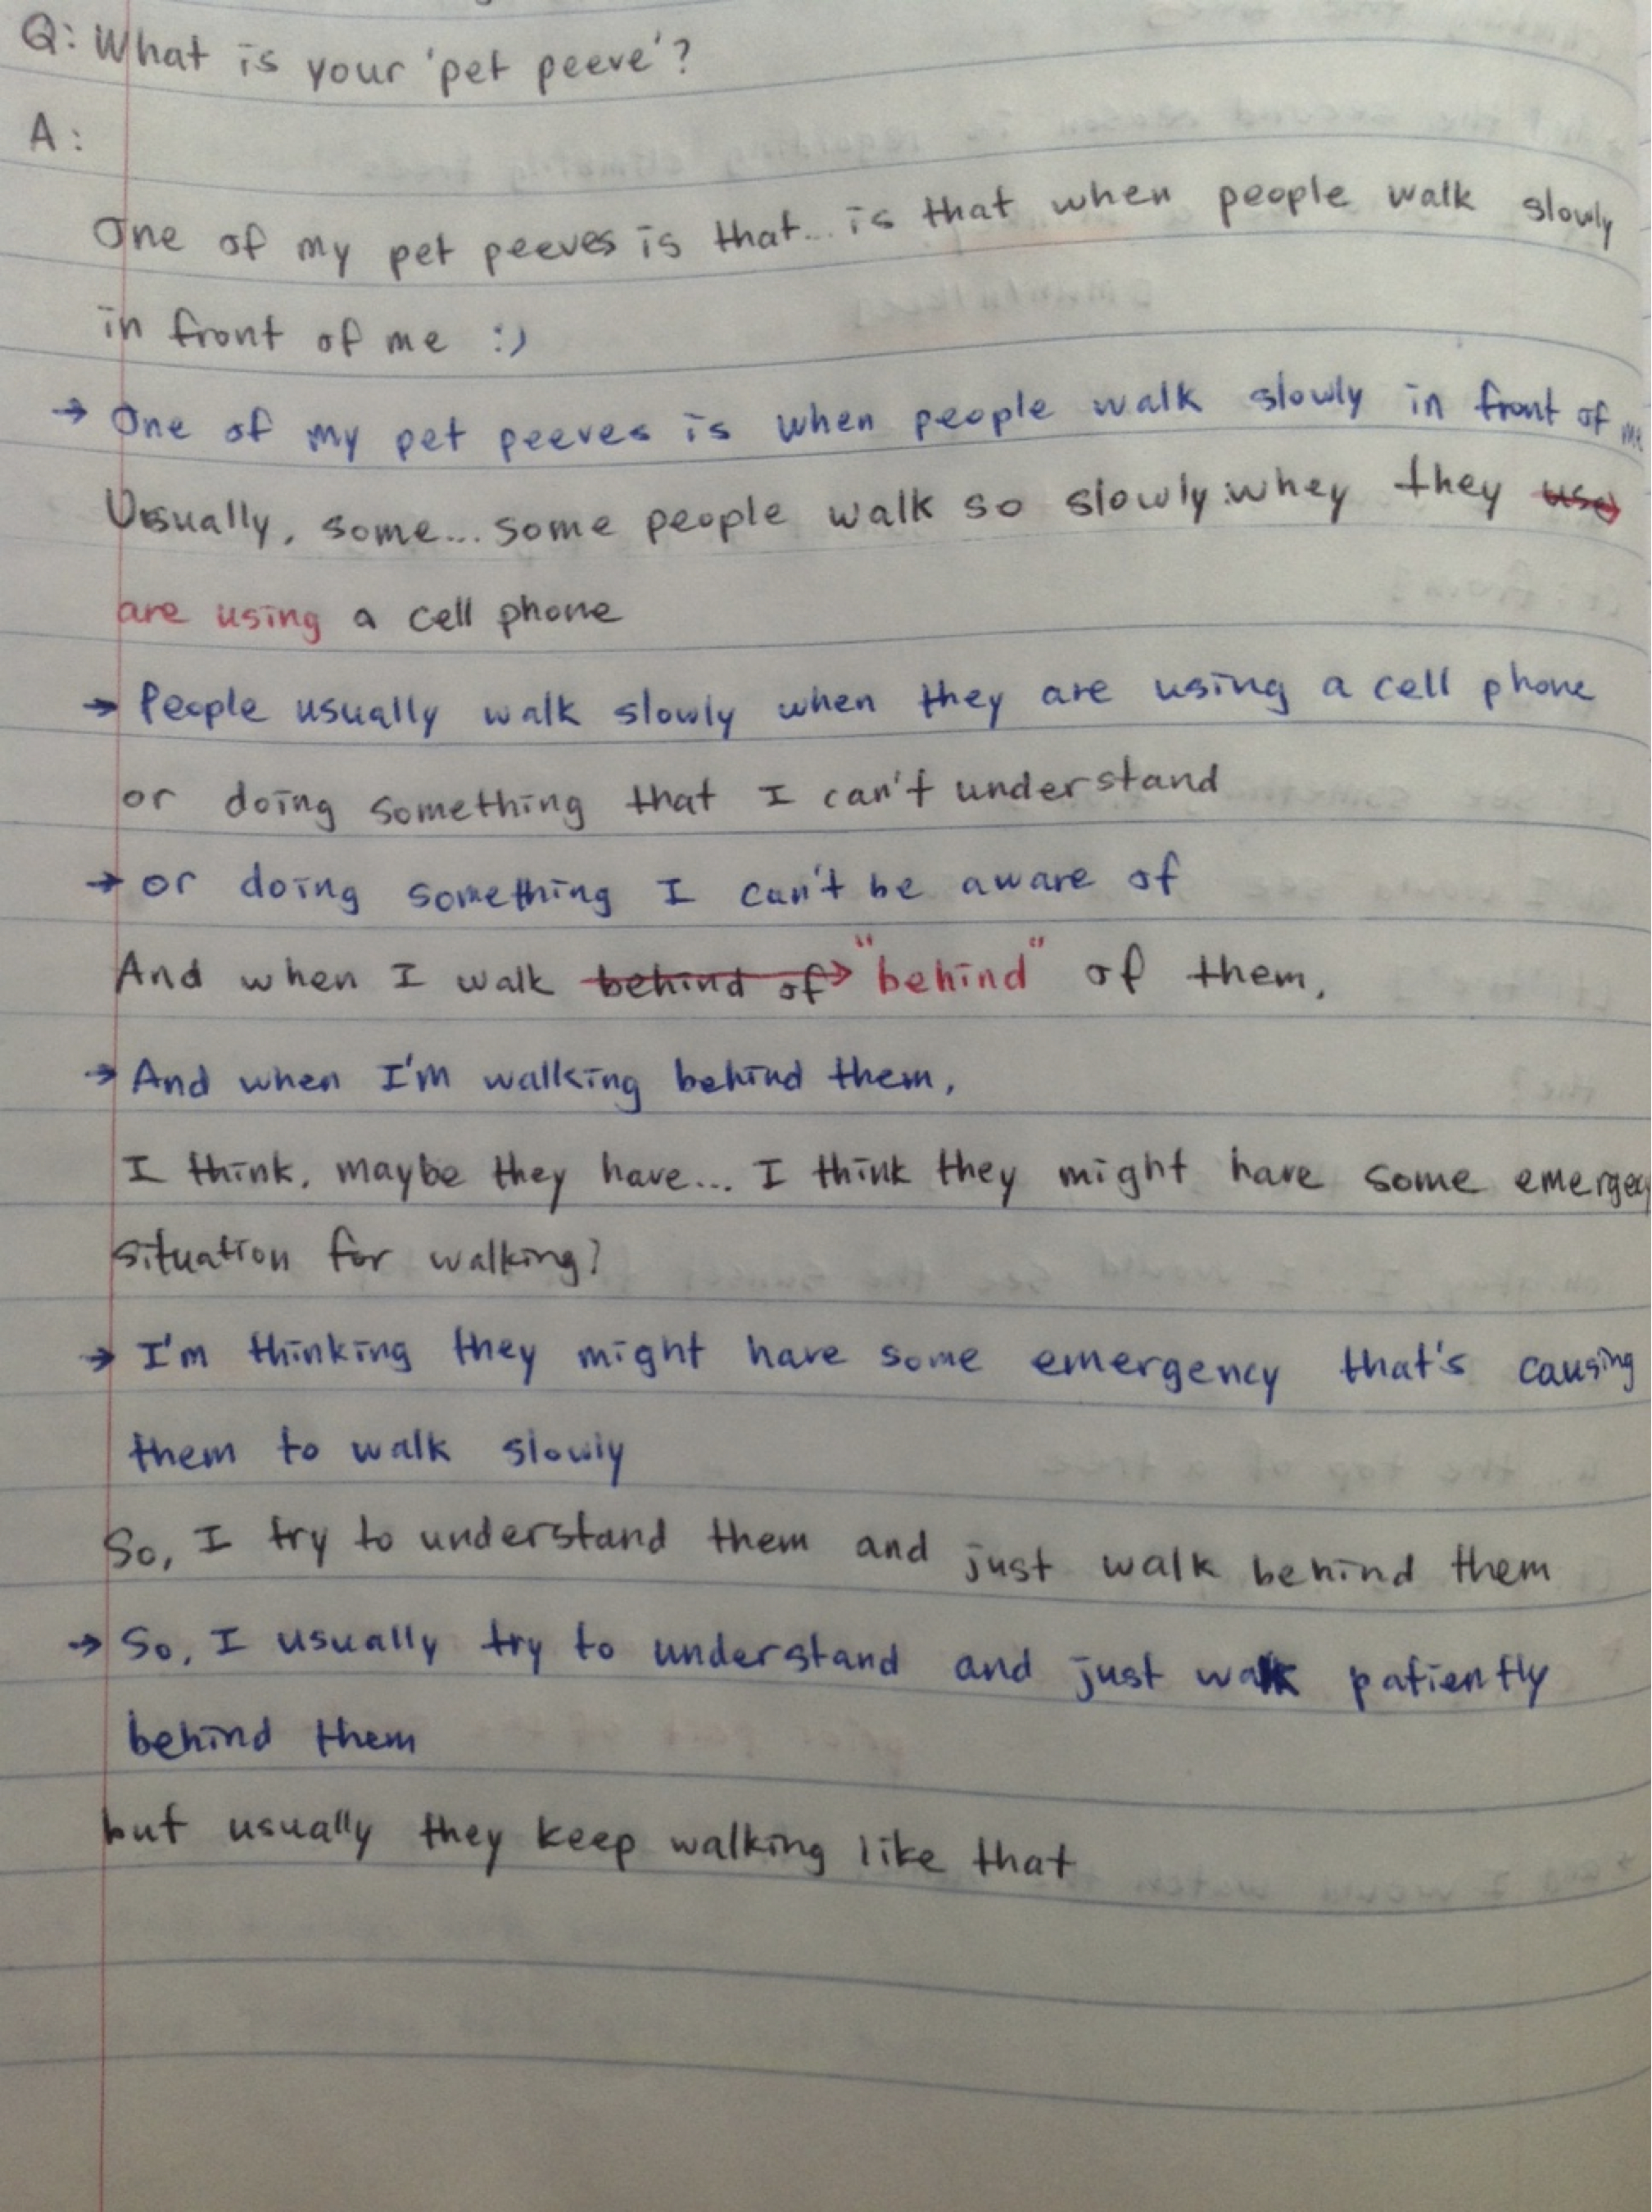 Q: What is your 'pet peeve'?
A:
One of my pet peeves is that... is that when people walk slowly
in front of me :)
→ One of my pet peeves is when people walk slowly in front of me
Usually, some... some people walk so slowly whey they use
are using a cell phone
→ People usually walk slowly when they are using a cell phone
or doing something that I can't understand
→ or doing something I can't be aware of
And when I walk behind of → "behind" of them,
→ And when I'm walking behind them,
I think, maybe they have... I think they might have some emergency
situation for walking?
→ I'm thinking they might have some emergency that's causing
them to walk slowly
So, I try to understand them and just walk behind them
→ So, I usually try to understand and just walk patiently
behind them
but usually they keep walking like that